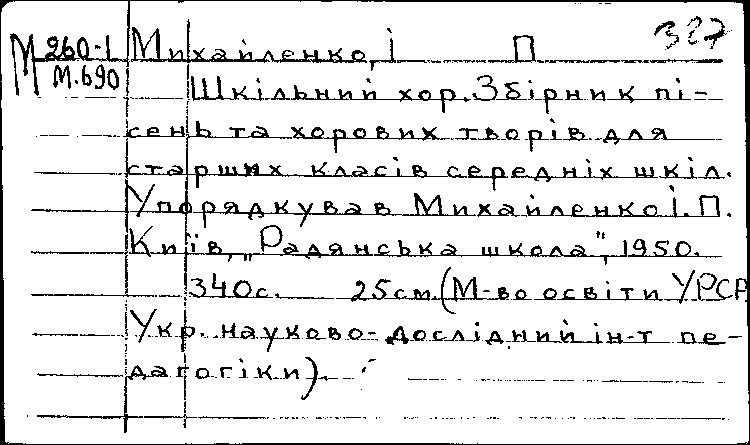 М 260-1 Михайленко, І П 327
М.690
Шкільний хор. Збірник пі-
сень та хорових творів для
старших класів середніх шкіл.
Упорядкував Михайленко І. П.
Київ, „Радянська школа", 1950.
340с. 25см (М-во освіти УРСР
Укр. науково-дослідний ін-т пе-
дагогіки).